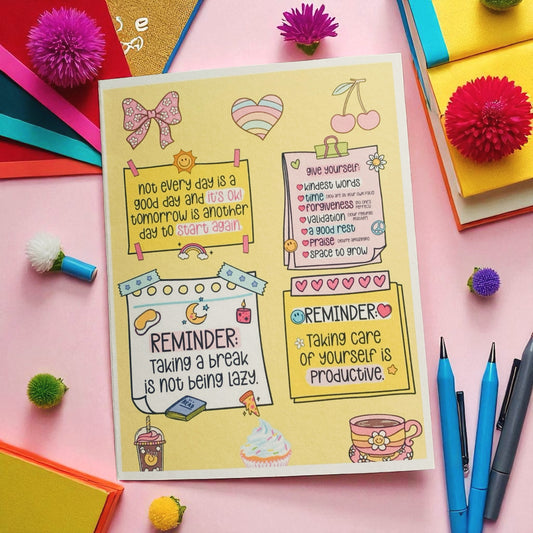 not every day is a
good day and it's ok!
tomorrow is another
day to start again.
give yourself:
kindest words
time (you are on your own path)
forgiveness (no one's perfect)
validation (your feelings matter)
a good rest
Praise (you're amazing)
space to grow
REMINDER:
Taking a break
is not being lazy.
REMINDER:
Taking care
of yourself is
Productive.